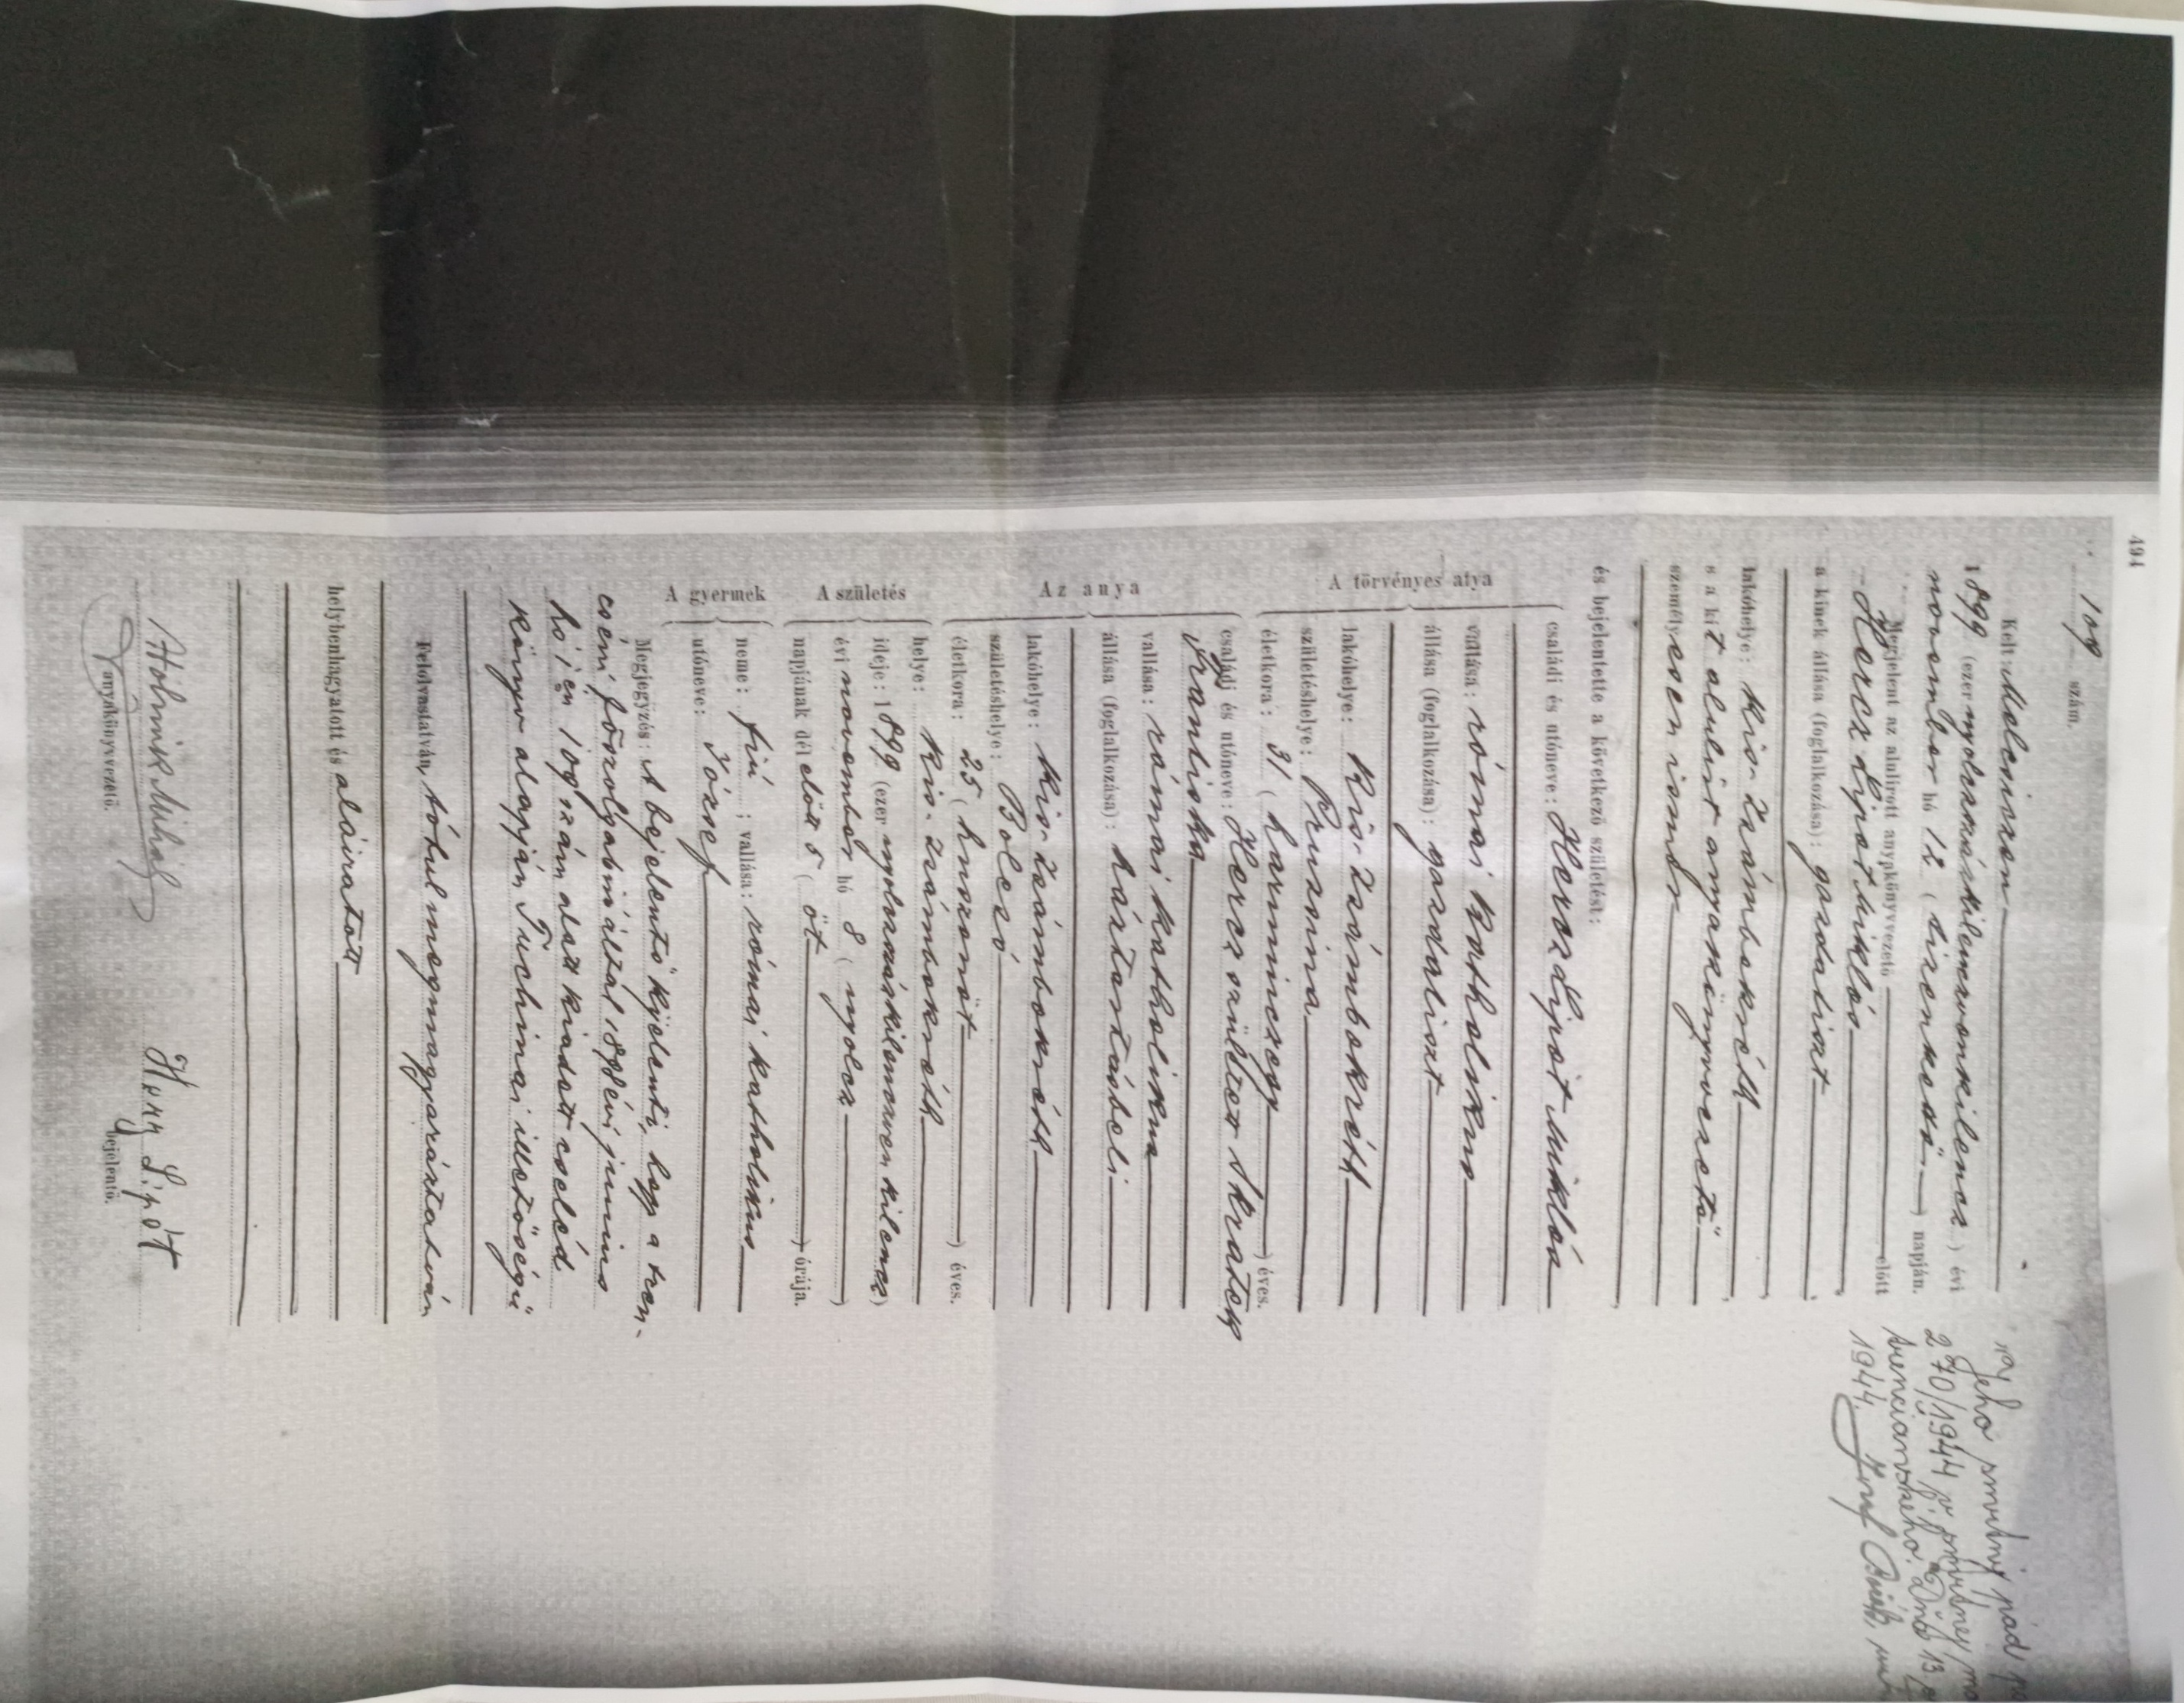 494
109 szám.
Kelt: Melcsiczen
1899 (ezer nyolczszázkilenczvenkilencz) évi
november hó 12 (tizenkettő) napján.
Megjelent az alulirott anyakönyvvezető előtt
Hercz Lipót Miklós
a kinek állása (foglalkozása): gazdatiszt
lakóhelye: Kis-Zsámbokréth
s a kit alulirt anyakönyvvezető
személyesen ismer
és bejelentette a következő születést:
A törvényes atya
családi és utóneve: Hercz Lipót Miklós
vallása: római katholikus
állása (foglalkozása): gazdatiszt
lakóhelye: Kis-Zsámbokréth
születéshelye: Pruzsina
életkora: 31 (harminczegy) éves.
Az anya
családi és utóneve: Hercz született Skratek
Frantiska
vallása: római katholikus
állása (foglalkozása): háztartásbeli
lakóhelye: Kis-Zsámbokréth
születéshelye: Bolesó
életkora: 25 (huszonöt) éves.
A születés
helye: Kis-Zsámbokréth
ideje: 1899 (ezer nyolczszázkilenczvenkilencz)
évi november hó 8 (nyolcz)
napjának dél előtt 5 (öt) órája.
A gyermek
neme: fiú; vallása: római katholikus
utóneve: József
Megjegyzés: A bejelentő kijelenti, hogy a tren-
cséni főszolgabiró által 1898 évi junius
hó én 109 szám alatt kiadott cseléd
könyv alapján Tuchinai illetőségű
Felolvastatván, tótul megmagyaráztatván
helybenhagyatott és aláiratott
Holznik Mihály
anyakönyvvezető.
Hercz Lipót
bejelentő.
jeho pád
270/1944
Dňa 13.
1944.